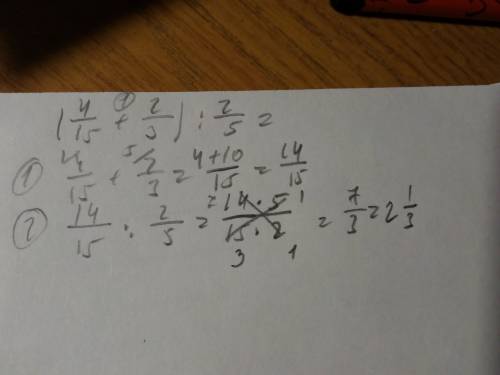 (4/15 + 2/3) : 2/5 =
① 4/15 + 2/3 = 4+10/15 = 14/15
② 14/15 : 2/5 = 14·5/15·2 = 7/3 = 2 1/3